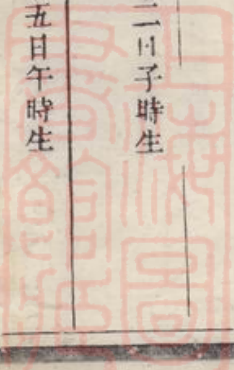 二日子時生
五日午時生